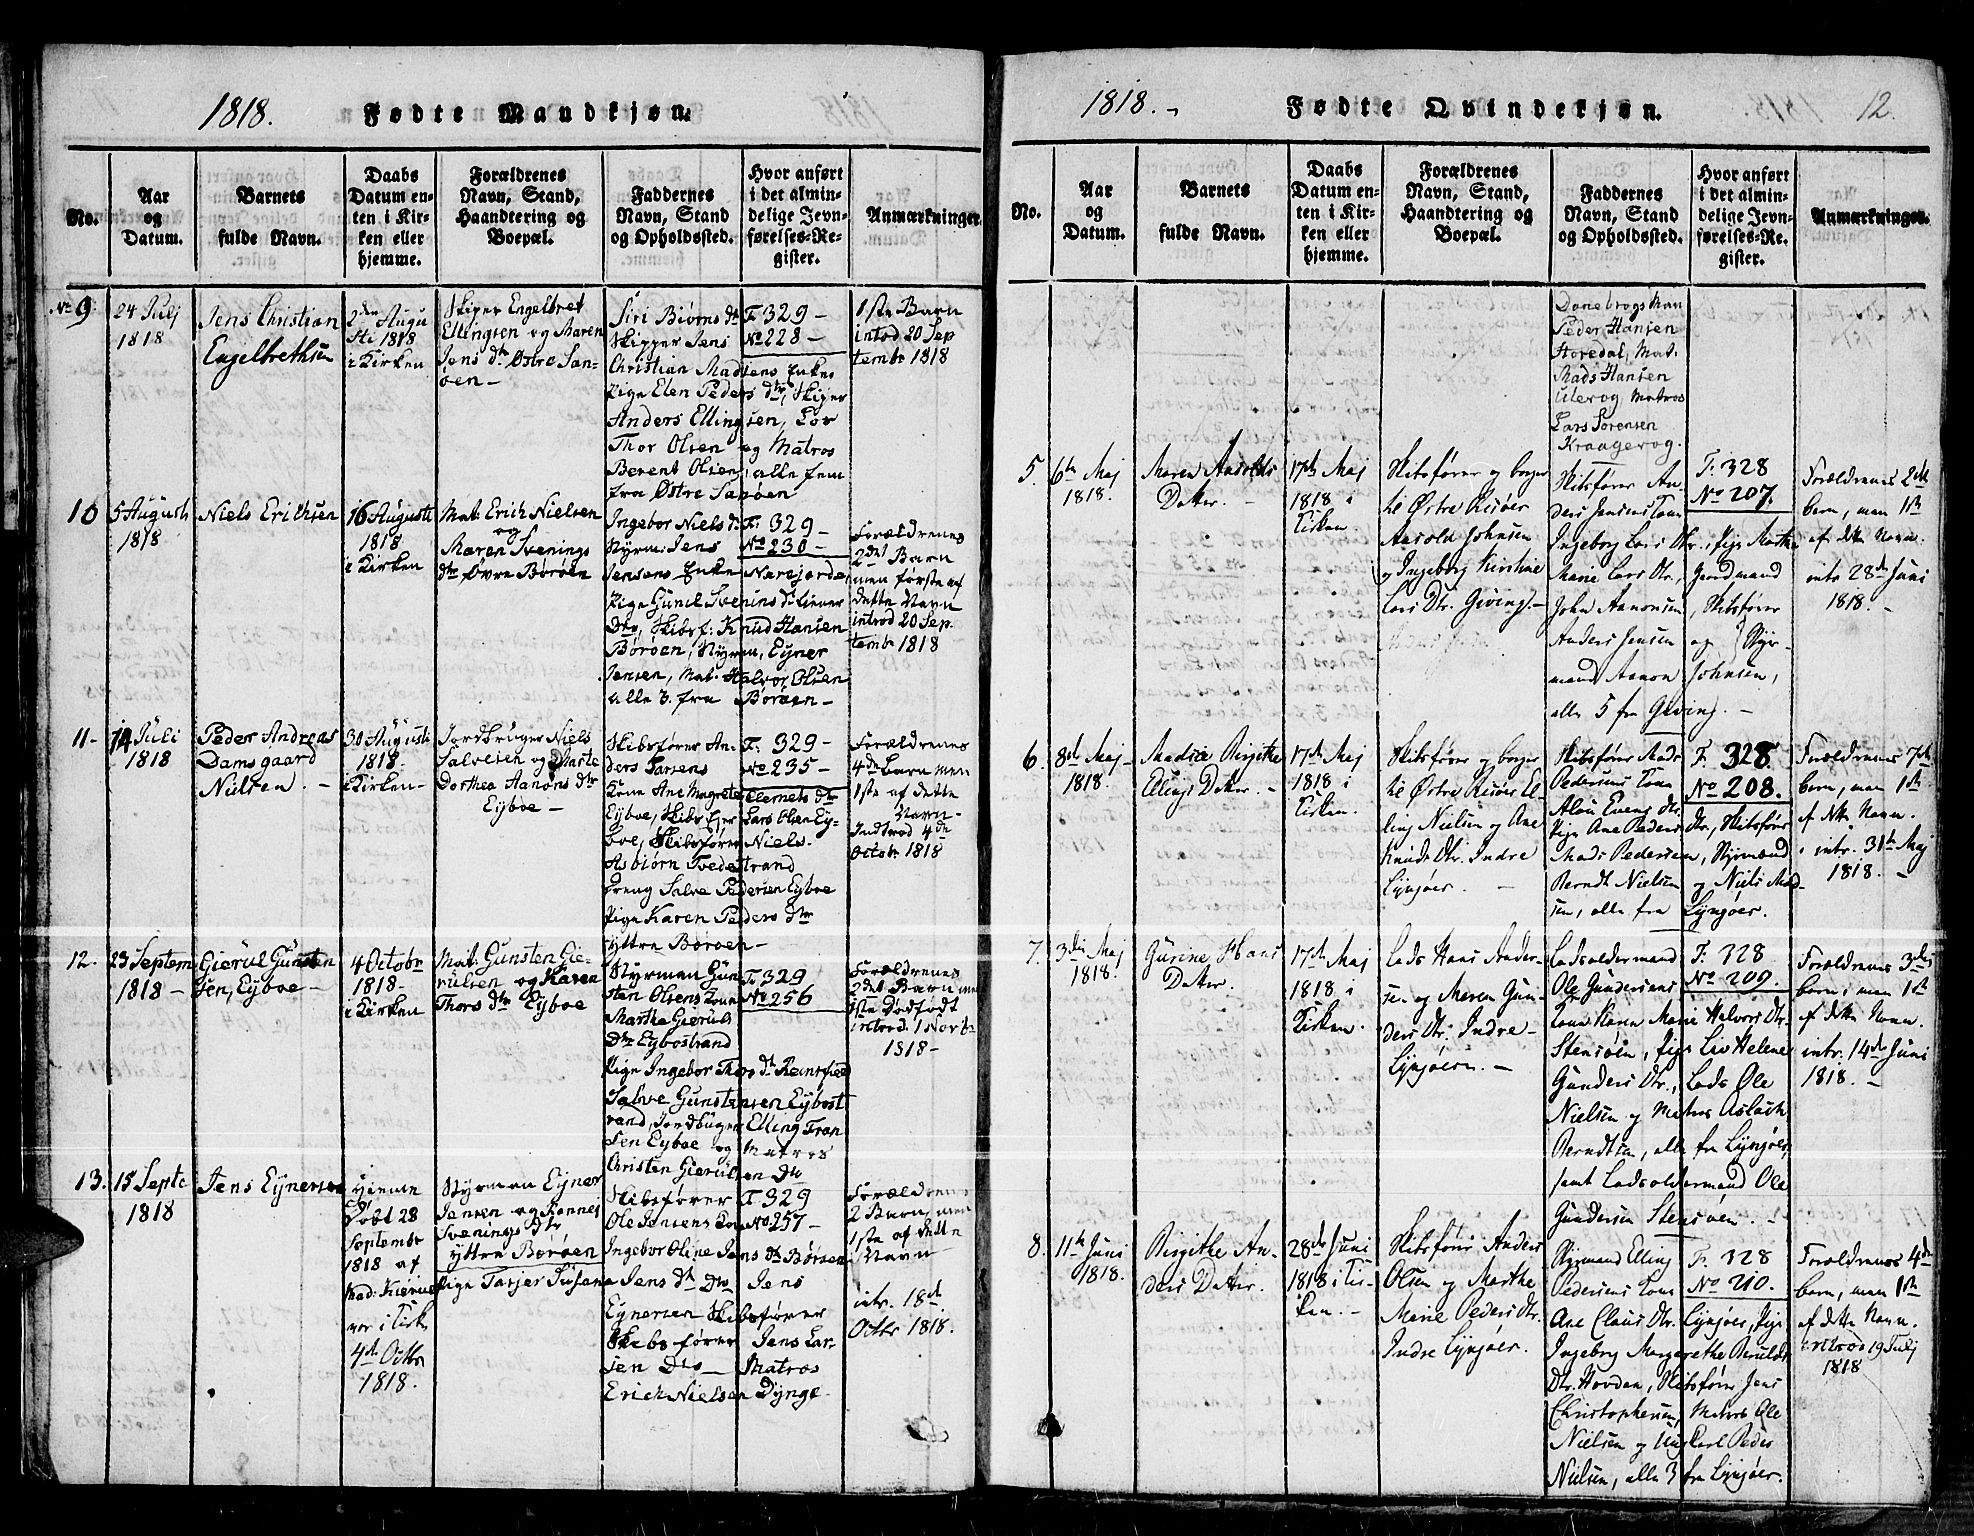 1818.
Fødte Mandkjøn.
No.
Aar og Datum.
Barnets fulde Navn.
Daabs Datum enten i Kirken eller hjemme.
Forældrenes Navn, Stand, Haandtering og Boepæl.
Faddernes Navn, Stand og Opholdssted.
Hvor anført i det almindelige Jevnførelses-Register.
Anmærkninger.
No 9.
24 Julj
1818
Jens Christian
Engelbrethsen
2den Augu
sti 1818
i Kirken
Skiper Engelbret
Ellingsen og Maren
Jens dtr Østre San-
øen-
Siri Biørns dtr
Skipper Jens
Christian Madsens Enke
Pige Elen Peders dtr, Skiper
Anders Ellingsen, Lov
Thor Olsen og Matros
Berent Olsen, alle fem
fra Østre Sanøen
F. 329-
No 228-
1ste Barn
introd 20 Sep
tembr 1818
10
5 Augusti
1818
Niels Erichsen
16 Augusti
1818
i Kirken
Mat: Erich Nielsen
og
Maren Svenings
dtr Øvre Børøen
Ingebor Niels dtr
Styrm: Jens
Jensens Enke Narefjorde,
Pige Gunil Svenins dtr Liener
Dto, Skibsf: Knud Hansen
Børøen, Styrm, Eyner
Jensen, Mat: Halvor Olsen
alle 3. fra Børøen-
F: 329-
No 230-
Forældrenes
2det Barn
men første af
dette Navn
introd 20 Sep
tembr 1818
11-
14 Juli
1818
Peder Andreas
Damsgaard
Nielsen-
30 Augusti
1818-
i Kirken-
Jordbruger Niels
Salvesen og Marte
Dorthea Aanons dtr
Eyboe-
Skibsfører An-
ders Larsens
Kone Ane Magrete Clemets dtr
Eyboe, Skibs Ejer Lars Olsen Ey-
boe, Skibsfører Niels
Asbiørn Tvedestrand
Dreng Salve Pedersen Eyboe
Pige Karen Peders dtr
yttre Børøen-
F: 329-
No 235-
Forældrenes
4de barn men
1ste af dette
Navn-
Indtrod 4de
Octobr 1818
12.
23 Septem
1818-
Gierul Gunsten
sen, Eyboe-
4 Octobr
1818-
i Kirken
Mat: Gunsten Gie-
rulsen og Karen
Thors dtr Eyboe
Styrman Gun
sten Olsens Kone
Marthe Gieruls
Dtr Eybostrand
Pige Ingebor Thors dtr
Salve Gunstensen Eybost
rand, Jordbuger Elling Tran
sen Eyboe og Matros
Christen Gierulsen Dto
F. 329
No 256
Forældrenes
2det Barn men
1ste Dødfødt
introd. 1 Novbr
1818-
13.
15 Septe
1818
Jens Eynersen
hjemme
Døbt 28
September
1818 af
var i Kirke
4de Octbr
1818.
Styrman Eyner
Jensen og Ronnei
Svenings Dtr
yttre Børøen
Skibsfører
Ole Jensens Kone
Ingebor Oline Jens dtr Børøen
Pige Tarjer Susana Jens dtr Dto Jens
Eynersen Skibsfører
Skibsfører Jens Lar-
sen Dto- Matros
Erich Nielsen Dynge-
F. 329
No: 257-
Forældrenes
2 Barn, men
1ste af dette
Navn
intr. 18de
Octbr 1818.
1818.-
Fødte Qvindekjøn.
12.
No.
Aar og Datum.
Barnets fulde Navn.
Daabs Datum enten i Kirken eller hjemme.
Forældrenes Navn, Stand, Haandtering og Boepæl.
Faddernes Navn, Stand og Opholdssted.
Hvor anført i det almindelige Jevnførelses-Register.
Anmærkninger.
Danebrogs Man
Peder Hansen
Storedal, Mat.
Mads Hansen
Ulevog, Matros
Lars Sørensen
Kraagevog.
5.
6te Maj
1818.
Maren Aarolds
Datter.-
17de Maj
1818 i
Kirken
Skibsfører og borger
til Østre Risøer
Aarold Johnsen
og Ingeborg Kirstine
Lars Dtr. Giving.-
Skibsfører An-
ders Jensens Kone
Ingeborg Lars Dtr., Pige Marthe
Marie Lars Dtr., Gaardmand
John Aanonsen, Skibsfører
Anders Jensen og Styr-
mand Aanon Johnsen,
alle 5 fra Giving.-
F. 328
No 207.
Forældrenes 2det
barn, men 1ste
af dette Navn.
intr. 28de Juni
1818.-
6.
8de Maj
1818.
Madsea Birgithe
Ellings Datter.-
17de Maj
1818 i
Kirken.
Skibsfører og borger
til Østre Risøer El-
ling Nielsen og Ane
Knuds Dtr. Indre
Lyngøer.-
Skibsfører Mads
Pedersens Kone
Pige Ane Peders Dtr, Skibsfører
Mads Pedersen, Styrmand
Berndt Nielsen og Niels Mad-
sen, alle fra Lyngøer.
F. 328.
No 208.
Forældrenes 7de
barn, men 1ste
af dette Navn.
intr. 31te Maj
1818.-
7.
3die Maj
1818.
Gurine Hans
Datter.
17de Maj
1818 i
Kirken.
Lods Hans Ander-
sen og Maren Gun-
ders Dtr. Indre
Lyngøer.-
Lodsoldermand
Ole Gundersens
Kone Karen Marie Halvors Dtr.
Stensøen, Pige Liv Helene
Gunders Dtr., Lods Ole
Nielsen og Matros Aslach
Berndtsen, alle fra Lyngøer,
samt Lodsoldermand Ole
Gundersen Stensøen.-
F. 328
No 209.
Forældrenes 3die
barn, men 1ste
af dette Navn.
intr. 14de Juni
1818.-
8.
11te Juni
1818.
Birgithe An-
ders Datter.
28de Juni
1818 i Kir-
ken.-
Skibsfører Anders
Olsen og Marthe
Marie Peders Dtr.
Indre Lyngøer.
Styrmand Elling
Pedersens Kone
Ane Claus Dtr. Lyngøer, Pige
Ingeborg Margrethe Beruldts
Dtr. Hovden, Skibsfører Jens
Christophersen, Matros Ole
Nielsen og Ungkarl Peder
Nielsen, alle 3 fra Lyngøer.
F. 328
No 210.
Forældrenes 4de
barn, men 1ste
af dette Navn.
Introd 19 Julj
1818